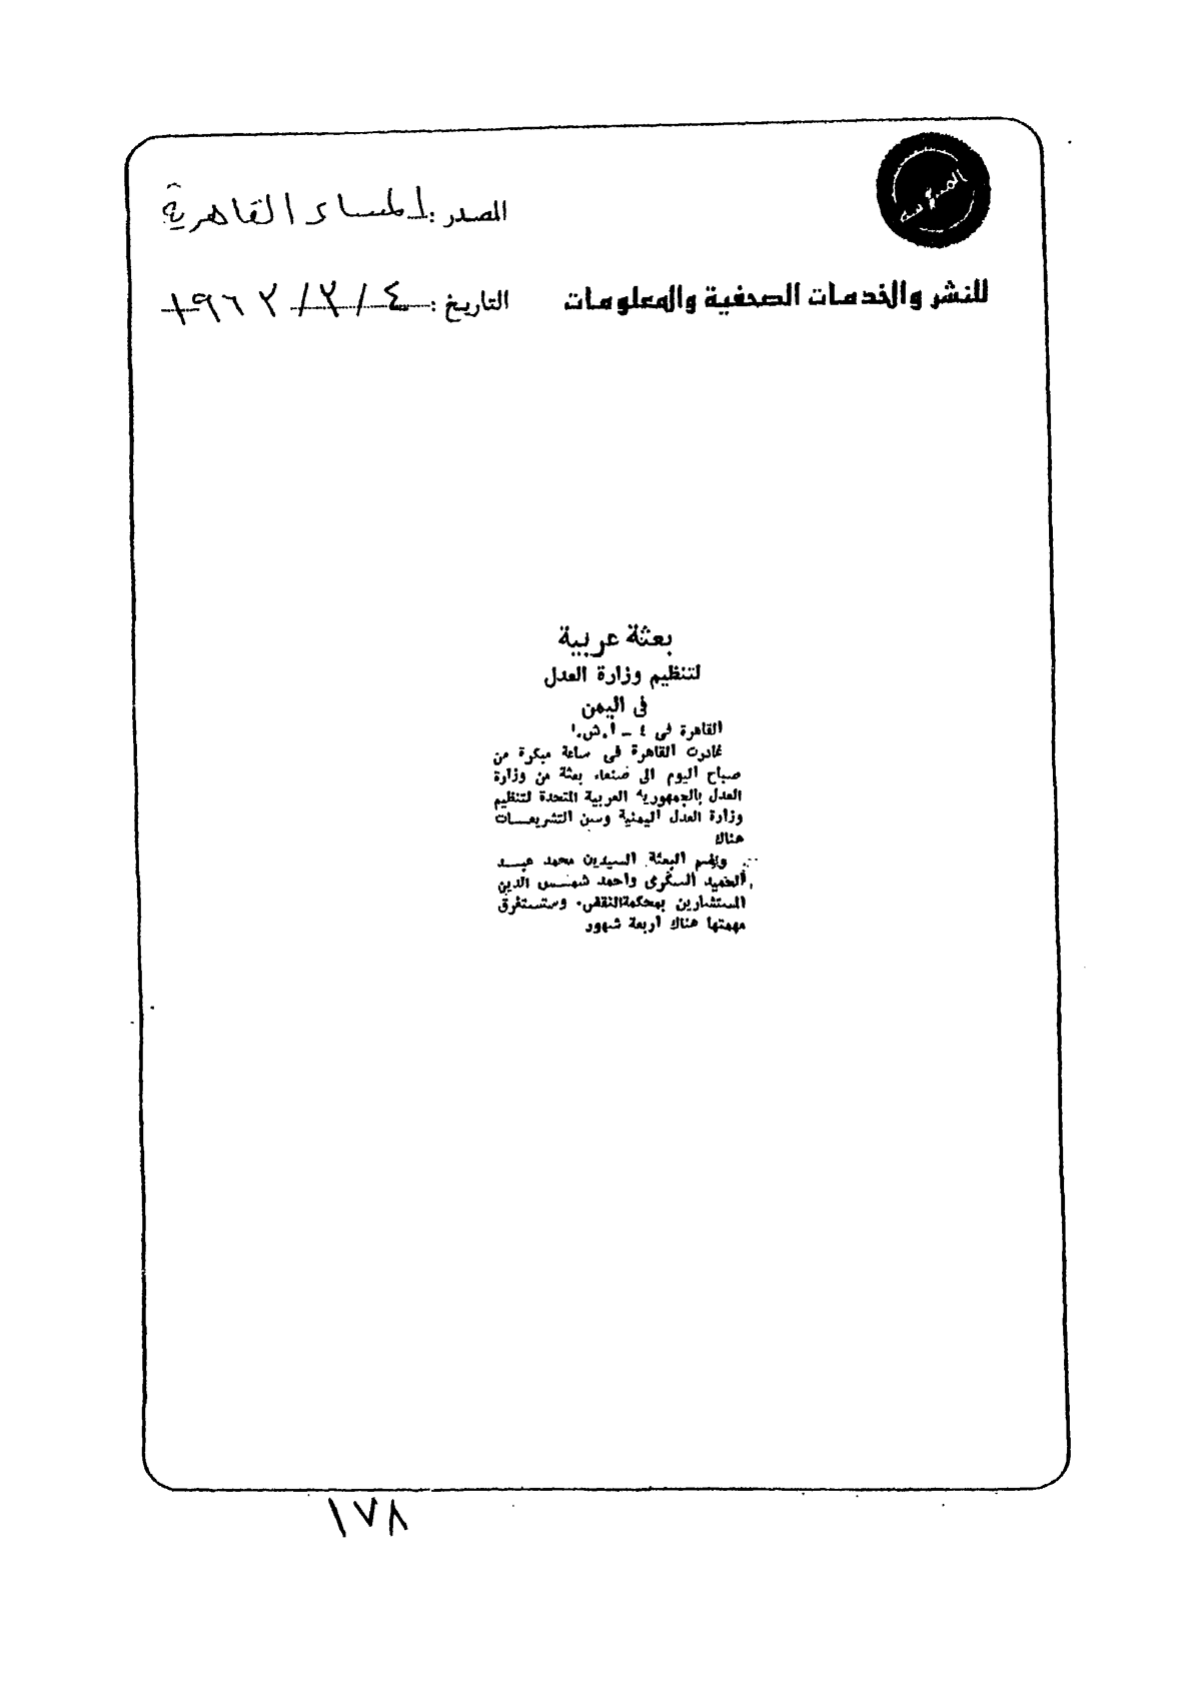 المحروسة
المصدر : المساء القاهرية
للنشر والخدمات الصحفية والمعلومات
التاريخ : ٤ / ٣ / ١٩٦٣
بعثة عربية
لتنظيم وزارة العدل
فى اليمن
القاهرة فى ٤ - أ.ش.أ
غادرت القاهرة فى ساعة مبكرة من
صباح اليوم الى صنعاء بعثة من وزارة
العدل بالجمهورية العربية المتحدة لتنظيم
وزارة العدل اليمنية وسن التشريعات
هناك
وتضم البعثة السيدين محمد عبد
الحميد السكرى واحمد شمس الدين
المستشارين بمحكمة النقض. وستستغرق
مهمتها هناك اربعة شهور
١٧٨